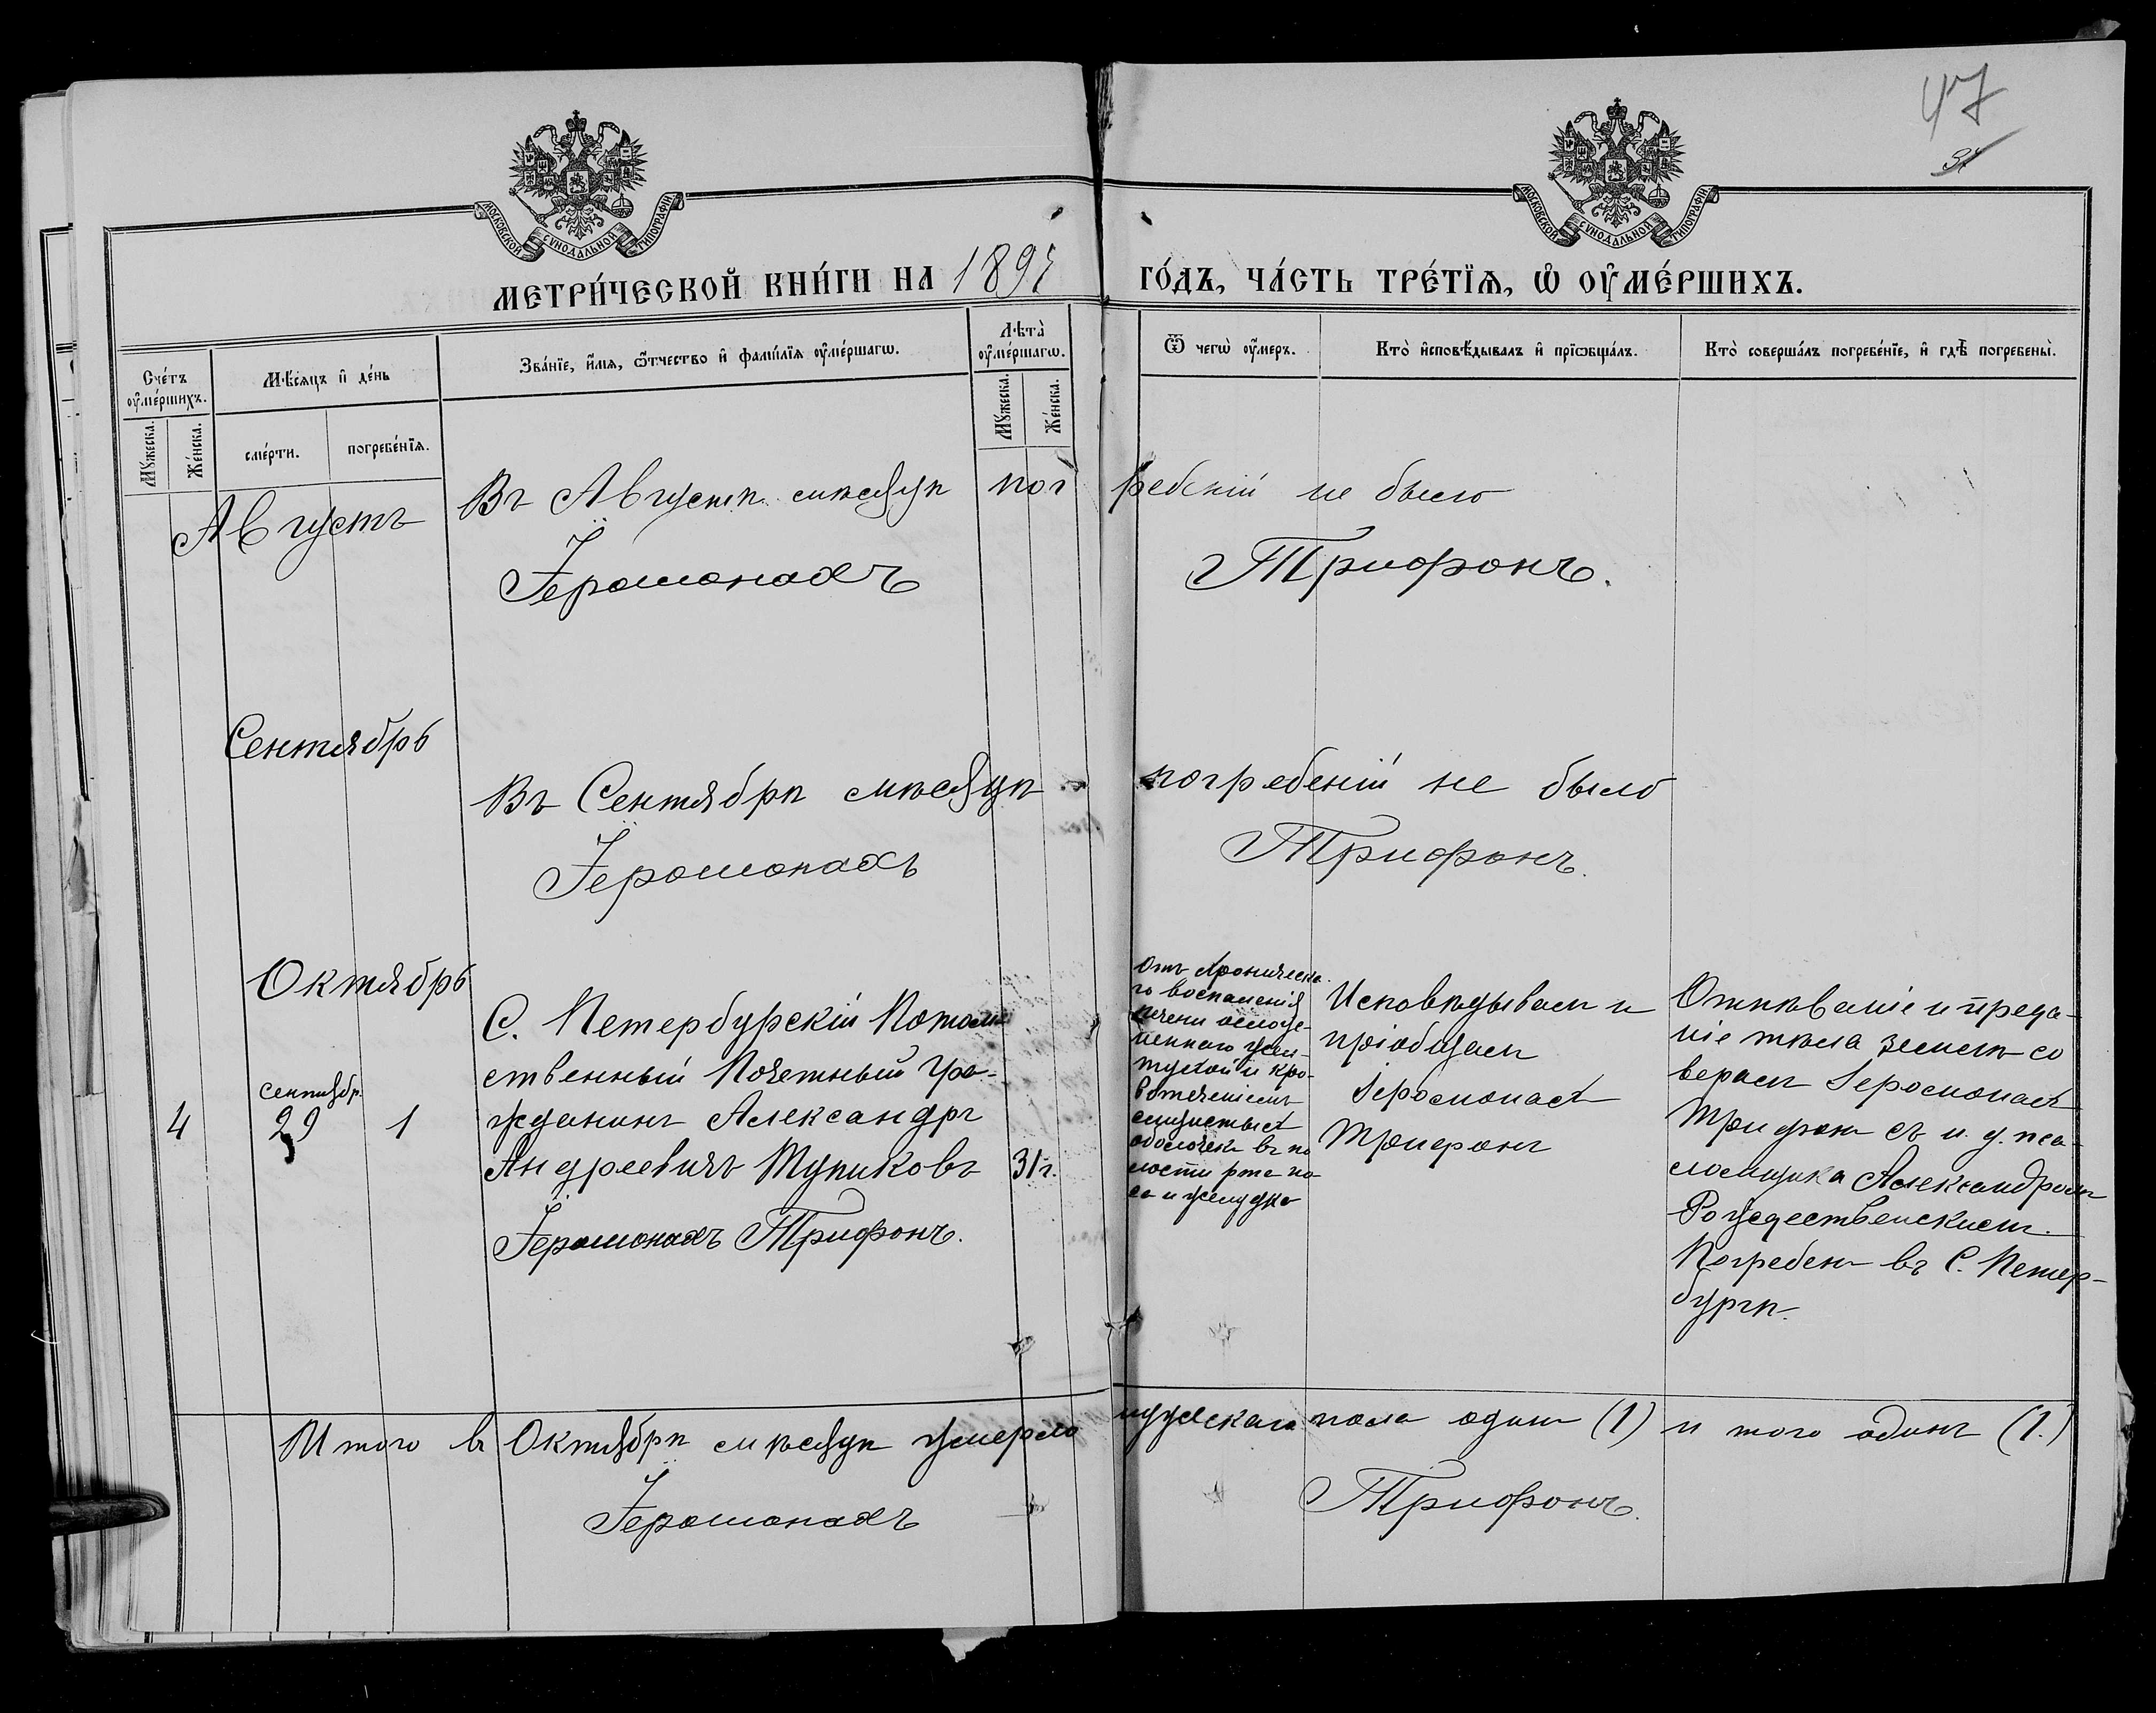 47
31
МОСКОВСКОЙ СѴНОДАЛЬНОЙ ТИПОГРАФІИ
МОСКОВСКОЙ СѴНОДАЛЬНОЙ ТИПОГРАФІИ
МЕТРИ́ЧЕСКОЙ КНИ́ГИ НА 1897 ГО́ДЪ, ЧА́СТЬ ТРЕ́ТЇѦ, Ѡ҆ ОУ҆МЕ́РШИХЪ.
Сче́тъ оу҆ме́ршихъ.
Мꙋ́жеска.
Же́нска.
Мѣ́сѧцъ и҆ де́нь
сме́рти.
погребе́нїѧ.
Зва́нїе, и҆́мѧ, ѻ҆́тчество и҆ фами́лїѧ оу҆ме́ршагѡ.
Лѣта̀ оу҆ме́ршагѡ.
Мꙋ́жеска.
Же́нска.
Ѿ чегѡ̀ оу҆́меръ.
Кто̀ и҆сповѣ́дывалъ и҆ прїѡбща́лъ.
Кто̀ соверша́лъ погребе́нїе, и҆ гдѣ̀ погребены̀.
Августъ
Въ Августѣ мѣсяцѣ погребеній не было
Іеромонахъ Трифонъ.
Сентябрь
Въ Сентябрѣ мѣсяцѣ погребеній не было
Іеромонахъ Трифонъ.
Октябрь
4
сентябр.
29
1
С. Петербурскій Потом-
ственный Почетный Гра-
жданинъ Александръ
Андреевичъ Тупиковъ
31 г.
Іеромонахъ Трифонъ.
Отъ хроническа-
го воспаленія
печени осложне-
ннаго желтухой и кро-
вотеченіемъ
слизистыхъ
оболочекъ въ по
лости рта но-
са и желудка
Исповѣдывалъ и
пріобщалъ
Іеромонахъ
Трифонъ
Отпѣваніе и преда-
ніе тѣла землѣ со
вершалъ Іеромонахъ
Трифонъ съ и. д. пса-
ломщика Александромъ
Рождественскимъ.
Погребенъ въ С. Петер-
бургѣ.
Итого въ Октябрѣ мѣсяцѣ умерло мужскаго пола одинъ (1) и того одинъ (1.)
Іеромонахъ Трифонъ.